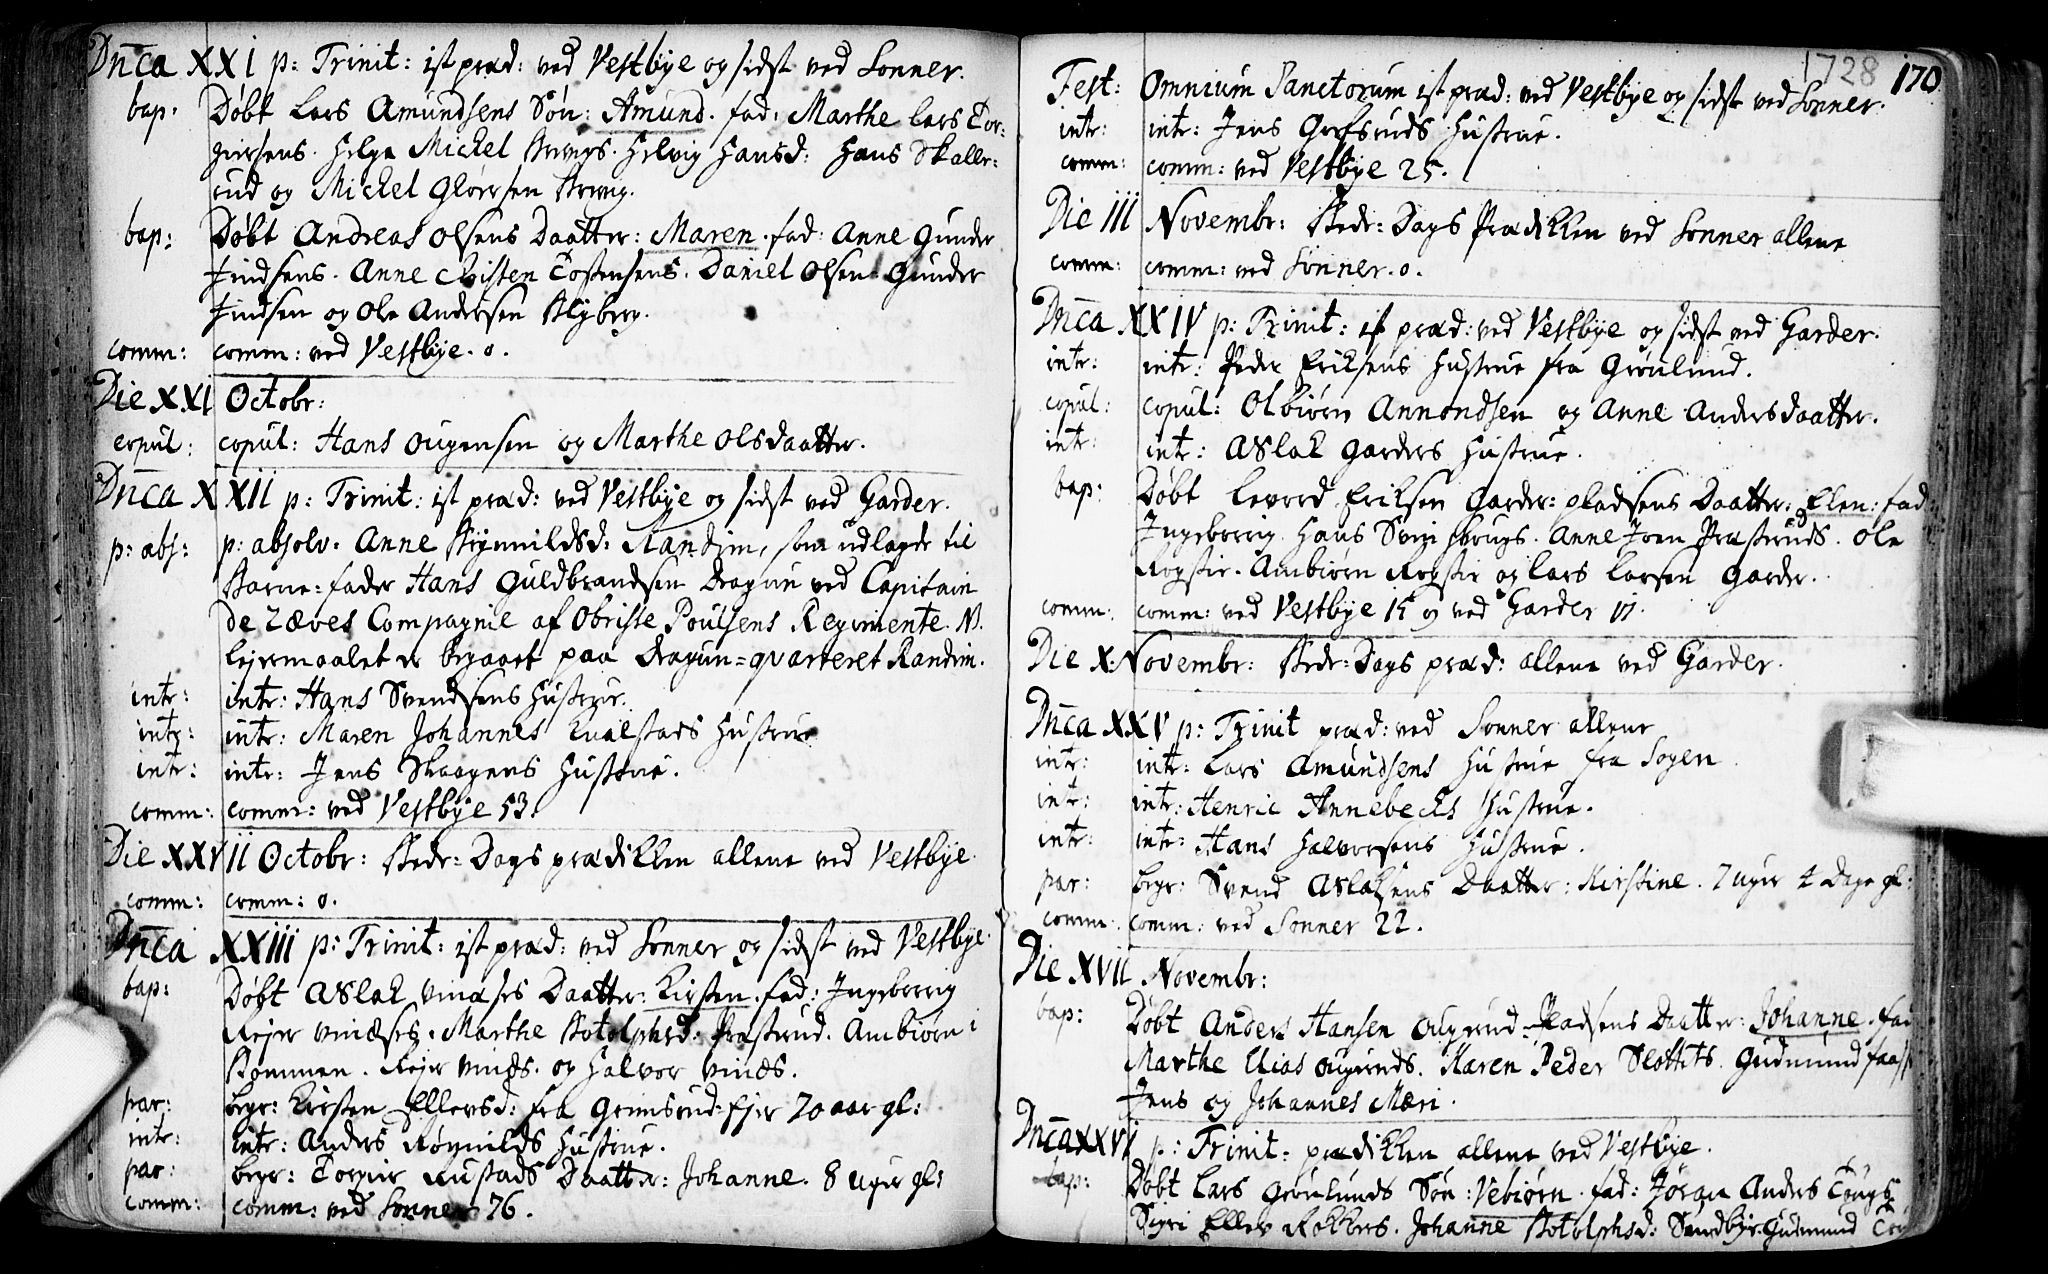 Dnca XXI p: Trinit: ist præd: ved Vestbye og sidst ved Sonner.
bap: Døbt Lars Amundsens Søn: Amund. fad: Marthe Lars Tor-
giersens. Helge Michel Brevigs. Helvig Hansd: Hans Skaller-
rud og Michel Gloersen Brevig.
bap: Døbt Andreas Olsens Daatter: Maren. fad: Anne Gunder
Findsens. Anne Christen Tostensens. Daniel Olsen. Gunder
Findsen og Ole Andersen Blyberg.
comm: comm: ved Vestbye. 0.
Die XXI Octobr:
copul: copul: Hans Ougensen og Marthe Olsdaatter.
Dnca XXII p: Trinit: ist præd: ved Vestbye og sidst ved Garder.
p: abs: p: absolv. Anne Brynnildsd: Randim, som udlagde til
Barne-fader Hans Guldbrandsen Dragun ved Capitain
de Zæves Compagnie af Obriste Poulsens Regimente. N.
Lejermaalet er begaaet paa Dragun-quarteret Randim.
intr: intr: Hans Svendsens Hustrue.
intr: intr: Maren Johannes Kualstads Hustrue
intr: intr: Jens Skaagens Hustrue.
comm: comm: ved Vestbye 53.
Die XXVII Octobr: Bede-Dags prædikken allene ved Vestbye.
comm: comm: 0.
Dnca XXIII p: Trinit: ist præd: ved Sonner og sidst ved Vestbye.
bap: Døbt Aslak Vinæses Daatter: Kirsten. fad: Ingeborrig
Rejer Vinæses. Marthe Botolphsd: Præstrud. Ambiørn i
Bommen. Rejer Vinæs. og Halvor Vinæs.
par: begr: Kirsten Ellevsd: fra Grimsrud-Ejer 70 aar gl:
intr: intr: Anders Røgnilds Hustrue.
par: begr: Torgier Rustads Daatter: Johanne. 8 uger gl:
comm: comm: ved Sonner 76.
1728 170
Fest: Omnium Sanctorum ist præd: ved Vestbye og sidst ved Sonner.
intr: intr: Jens Grefsruds Hustrue.
comm: comm: ved Vestbye 25.
Die III Novembr: Bede-Dags Prædikken ved Sonner allene
comm: comm: ved Sonner. 0.
Dnca XXIV p: Trinit: ist præd: ved Vestbye og sidst ved Garder.
intr: intr: Peder Eriksens Hustrue fra Grønlund.
copul: copul: Olbiørn Annondsen og Anne Andersdaatter.
intr: intr: Aslak Garders Hustrue.
bap: Døbt Levord Eriksen Garder-pladsens Daatter: Elen: fad:
Ingeborrig Hans Svenskerugs. Anne Joen Præstruds. Ole
Rogstie. Ambiørn Rogstie og Lars Larsen Garder.
comm: comm: ved Vestbye 15 og ved Garder 17.
Die X Novembr: Bede-Dags præd: allene ved Garder.
Dnca XXV p: Trinit præd: ved Sonner allene
intr: intr: Lars Amundsens Hustrue fra Sogen.
intr: intr: Henric Annebecks Hustrue.
intr: intr: Hans Halvorsens Hustrue.
par: begr: Svend Aslaksens Daatter: Kirstine. 7 uger 4 Dage gl:
comm: comm: ved Sonner 22.
Die XVII Novembr:
bap: Døbt Anders Hansen Ougerud-Pladsens Daatter: Johanne. fad
Marthe Elias Ougeruds. Karen Peder Slottets. Gudmund
Jens og Johannes Mæri.
Dnca XXVI p: Trinit: prædikken allene ved Vestbye.
bap: Døbt Lars Grønlunds Søn: Vebiørn. fad: Jøran Anders Tougs
Sigri Ellev Rokkers. Johanne Botolphsd: Sundbye. Gudmund